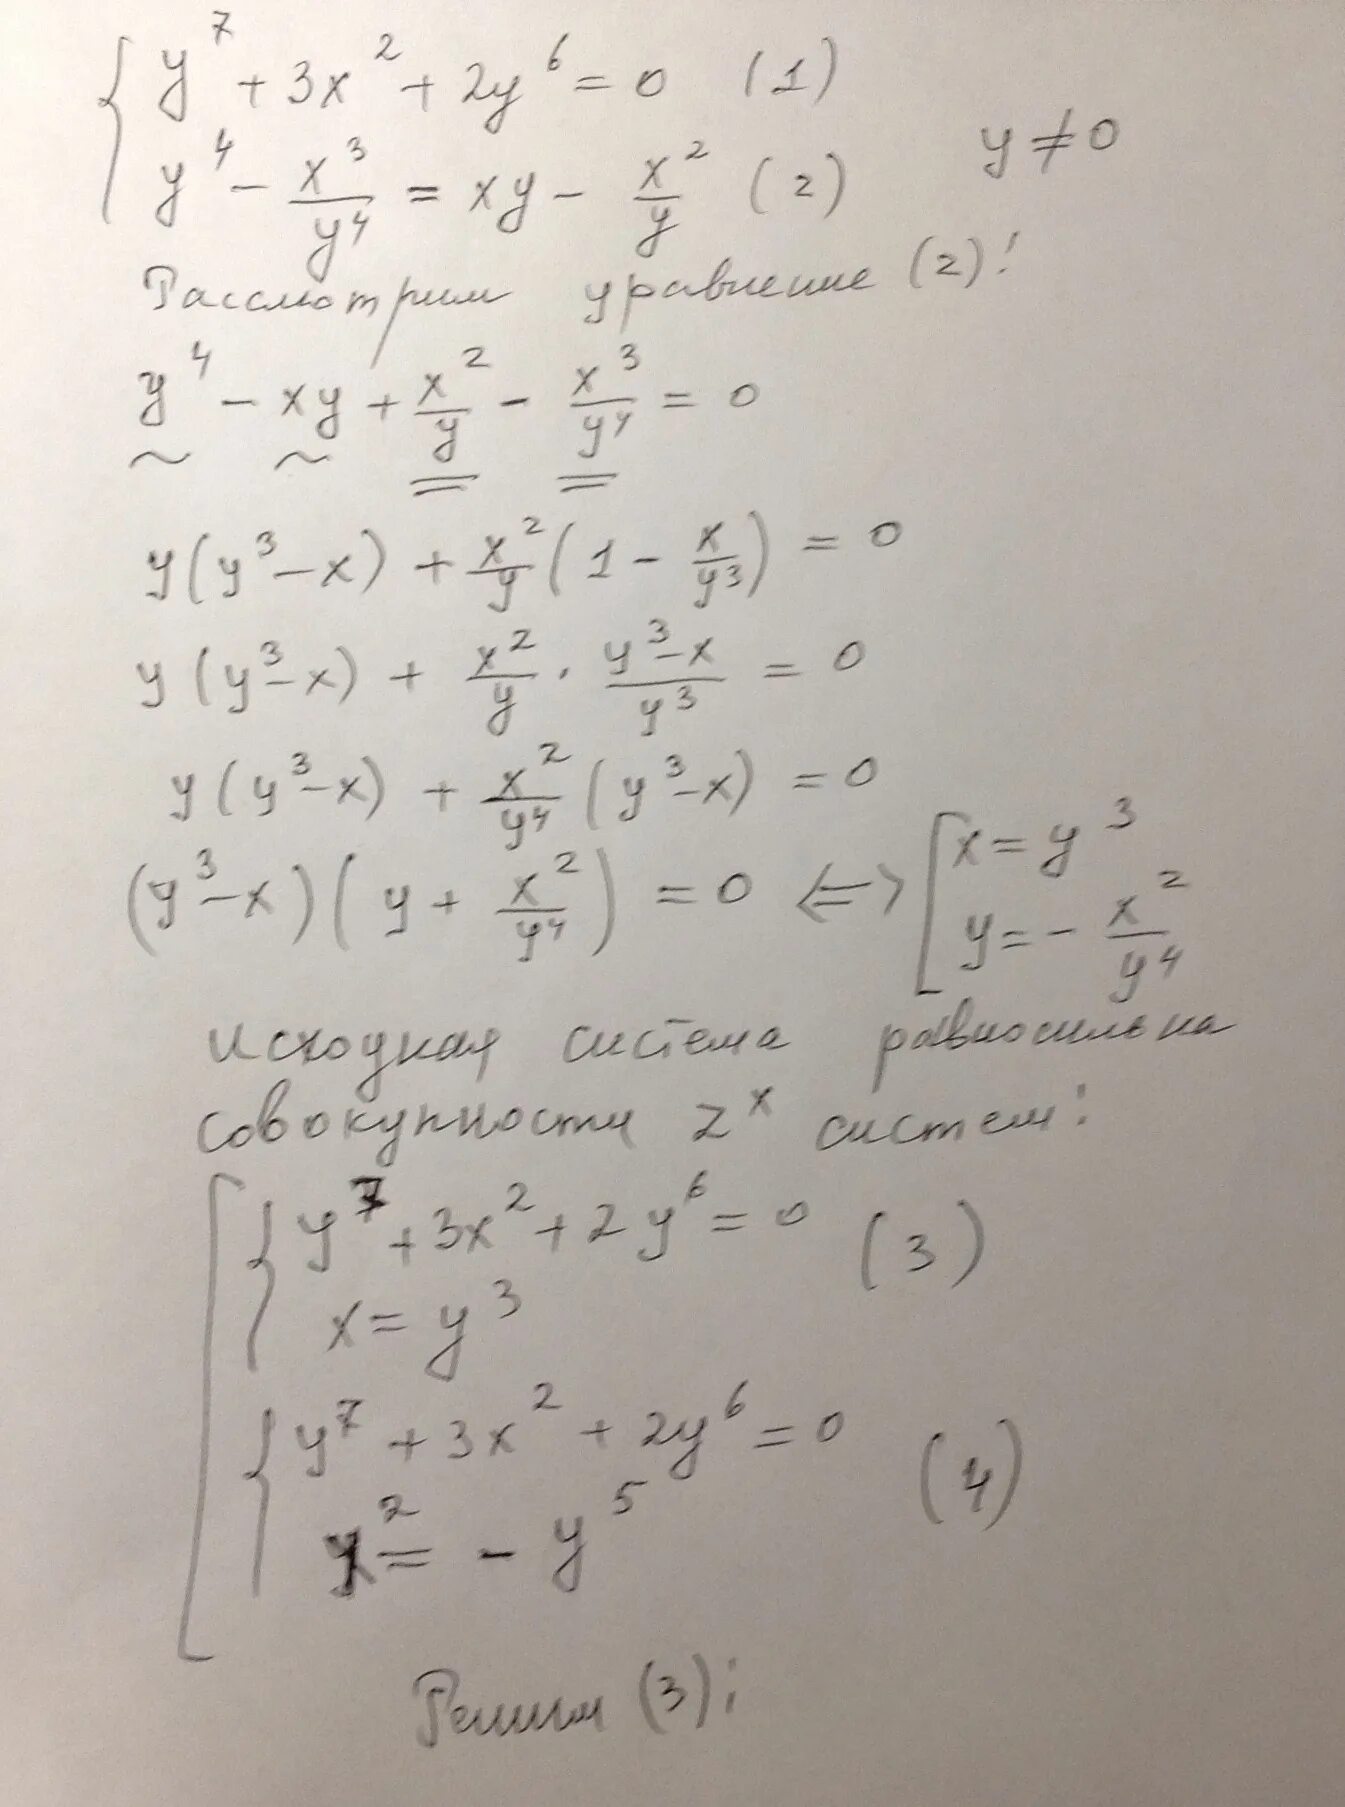 y⁷ + 3x² + 2y⁶ = 0 (1)
y⁴ - x³/y⁴ = xy - x²/y (2) y ≠ 0
Рассмотрим уравнение (2):
y⁴ - xy + x²/y - x³/y⁴ = 0
y(y³-x) + x²/y (1 - x/y³) = 0
y(y³-x) + x²/y · (y³-x)/y³ = 0
y(y³-x) + x²/y⁴ (y³-x) = 0
(y³-x)(y + x²/y⁴) = 0 <=> [ x = y³
y = - x²/y⁴
Исходная система равносильна
совокупности 2ˣ систем:
y⁷ + 3x² + 2y⁶ = 0 (3)
x = y³
y⁷ + 3x² + 2y⁶ = 0 (4)
x² = - y⁵
Решим (3):